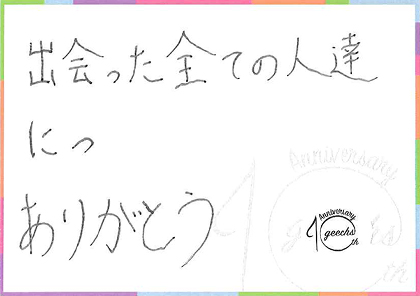 出会った全ての人達
にっ
ありがとう
Anniversary
10 geechs
th
Anniversary
geechs
th